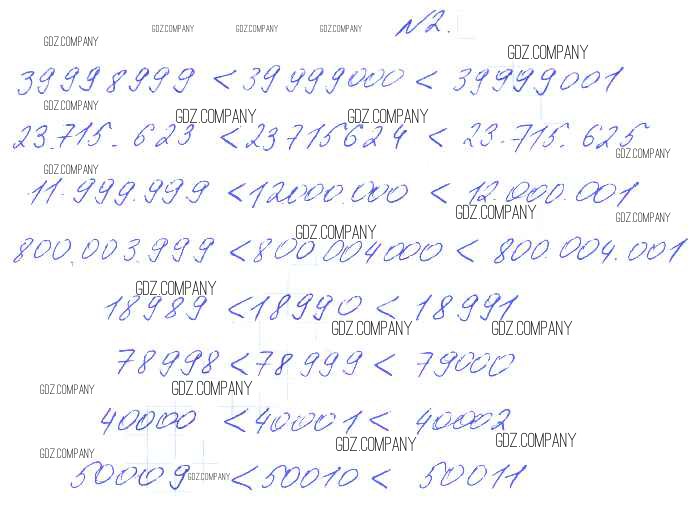 №2.
39998999 < 39999000 < 39999001
23.715.623 < 23715624 < 23.715.625
11.999.999 < 12000.000 < 12.000.001
800.003.999 < 800.004000 < 800.004.001
18989 < 18990 < 18991
78998 < 78999 < 79000
40000 < 40001 < 40002
50009 < 50010 < 50011
GDZ.COMPANY GDZ.COMPANY GDZ.COMPANY GDZ.COMPANY
GDZ.COMPANY
GDZ.COMPANY GDZ.COMPANY GDZ.COMPANY
GDZ.COMPANY
GDZ.COMPANY
GDZ.COMPANY GDZ.COMPANY
GDZ.COMPANY
GDZ.COMPANY
GDZ.COMPANY GDZ.COMPANY
GDZ.COMPANY GDZ.COMPANY
GDZ.COMPANY GDZ.COMPANY
GDZ.COMPANY
GDZ.COMPANY